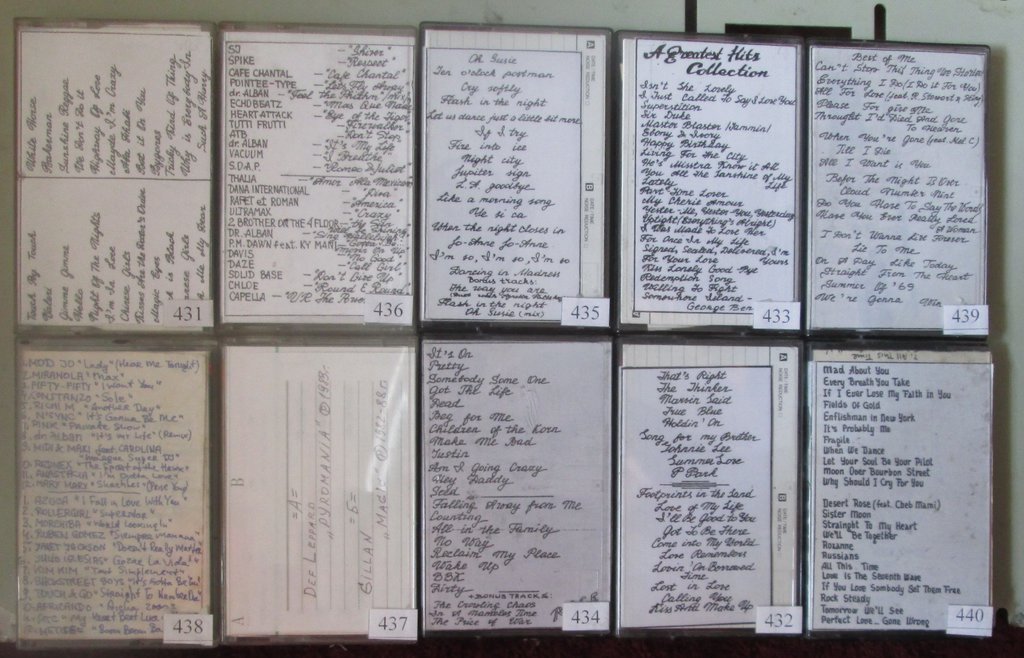 White Horse
Fisherman
Sunshine Reggae
We Don't Do it
Highway Of Love
Always I'm Crazy
Ale Mihale You
Get it On You
Gypsies
Truly Kind Of Thing
Why is Everybody In
Such A Hurry
Touch By Touch
Helen
Gimme Gimme
Hello
Night Of The Nights
I'm In Love
Chinese Girls
Magic Eyes
431
SJ - "Shiver"
SPIKE - "Respect"
CAFE CHANTAL - "Cafe Chantal"
POINTEE-TYPE - "Let's Fly Away"
dr. ALBAN - "Feel The
ECHOBEATZ - "Mas Que Nada"
HEART ATTACK - "Eye of the Tiger
TUTTI FRUTTI - "Firewalker
ATB - "Don't Stop
dr. ALBAN - "It's My Life
VACUUM - "I Breathe"
S.O.A.P. - "Romeo & Juliet
THALIA - "Amor Ala Mexicana
DANA INTERNATIONAL - "Diva"
RAPET et ROMAN - "America"
ULTRAMAX - "Crazy
2 BROTHER ON THE 4 FLOOR
DR. ALBAN
P.M. DAWN feat. KY MANI - "Gotta Be
DAVIS - "No Good"
DAZE
SOLID BASE - "Don't Give Up
CHLOE - "Round & Round"
CAPELLA - "U R The Power
436
Oh Susie
Ten o'clock postman
Cry softly
Flash in the night
Let us dance just a little bit more
If I try
Fire into ice
Night city
Jupiter sign
L.A. goodbye
Like a morning song
He si ca
When the night closes in
Jo-Anne Jo-Anne
I'm so, I'm so, I'm so
Dancing in Madness
Bonus tracks:
The way you are
Flash in the night
Oh Susie (mix)
435
A Greatest Hits
Collection
Isn't She Lovely
I Just Called To Say I Love You
Superstition
Sir Duke
Master Blaster (Jammin)
Ebony & Ivory
Happy Birthday
Living For The City
He's Misstra Know it All
You Are The Sunshine of My
Life
Lately
Part Time Lover
My Cherie Amour
Yester-Me, Yester-You, Yesterday
Uptight (Everything's Alright)
I Was Made To Love Her
For Once In My Life
Signed, Sealed, Delivered, I'm
Yours
For Your Love
Kiss Lonely Good-Bye
Redemption Song
Willing To Fight
Somewhere Island -
George Ben
433
Best of Me
Can't Stop This Thing We Started
Everything I Do (I Do it For You)
All For Love (feat. R. Stewart & Sting)
Please For give Me
Throught I'd Died And Gone
To Heaven
When You're Gone (feat. Mel C.)
Till I Die
All I Want is You
Before The Night Is Over
Cloud Number Nine
Do You Have To Say The Words
Have You Ever Really Loved
A Woman
I Don't Wanna Live Forever
Lie To Me
On A Day Like Today
Straight From The Heart
Summer Of '69
We're Gonna Win
439
1. MODJO "Lady" (Hear Me Tonight)
2. MIRANOLA "Max"
3. FIFTY-FIFTY "I Want You"
"Sole"
5. RICHI M "Another Day"
6. NSYNC "It's Gonna Be Me"
7. PINK "Private Show"
8. dr. ALBAN "It's my Life" (Remix)
9. MIDI & MAXI feat. CAROLINA
10. REDNEX "The Spirit of the Hawk"
11. ANASTACIA "I'm Outta Love"
12. MARY MARY "Shackles" (Praise You)
"I Fall in Love With You"
2. ROLLERGIRL "Superstar"
3. MORCHEEBA "World Looking In"
4. RUBEN GOMEZ "Siempre Manana"
5. JANET JACKSON "Doesn't Really Matter
6. JULIO IGLESIAS "Gozar La Vida"
7. KIM KIM "Tout Simplement"
8. BACKSTREET BOYS "It's Gotta Be You"
9. TOUCH & GO "Straight To Number One"
10. AFRICANDO
438
A
B
=A=
DEF LEPPARD "PYROMANIA" © 1983r.
=B=
GILLAN "MAGIC"
437
It's On
Pretty
Somebody Some One
Got The Life
Dead
Beg for Me
Children of the Korn
Make Me Bad
Justin
Am I Going Crazy
Hey Daddy
Seed
Falling Away from Me
Counting
All in the Family
No Way
Reclaim My Place
Wake Up
BBK
Dirty
BONUS TRACKS:
The Crowling Chaos
In A Manolete Time
The Price of War
434
That's Right
The Thinker
Martin Said
True Blue
Holdin' On
Song for my Brother
Johnnie Lee
Summer Love
P Park
Footprints in the Sand
Love of My Life
I'll Be Good to You
Got To Be There
Come into My World
Love Remembers
Lovin' On Borrowed
Time
Lost in Love
Calling You
Kiss And Make Up
432
7. All This Time
Mad About You
Every Breath You Take
If I Ever Lose My Faith in You
Fields Of Gold
Enflishman in New York
It's Probably Me
Fragile
When We Dance
Let Your Soul Be Your Pilot
Moon Over Bourbon Street
Why Should I Cry For You
Desert Rose (feat. Cheb Mami)
Sister Moon
Strainght To My Heart
We'll Be Together
Roxanne
Russians
All This Time
Love Is The Seventh Wave
If You Love Somebody Set Them Free
Rock Steady
Tomorrow We'll See
Perfect Love... Gone Wrong
440